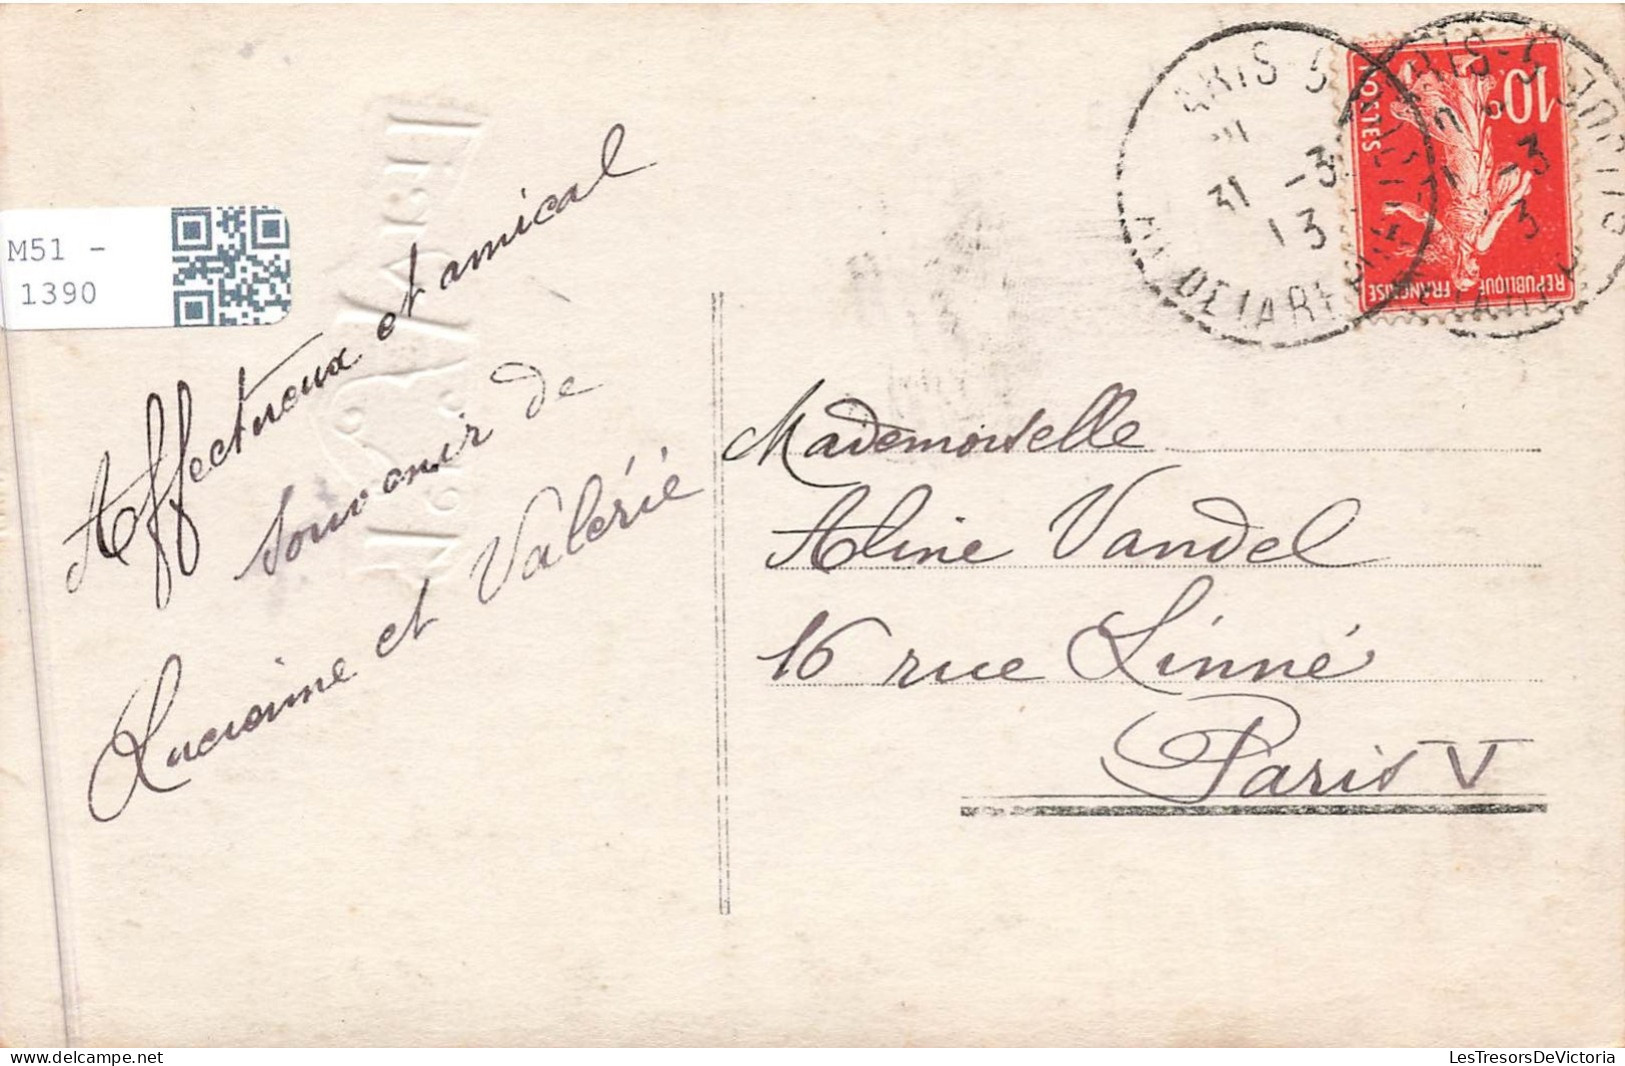 M51 -
1390
Affectueux et amical
souvenir de
Lucienne et Valérie
10c
POSTES
REPUBLIQUE FRANÇAISE
31 -3
13
Mademoiselle
Aline Vandel
16 rue Linné
Paris V
Fermer les yeux | Delcampe.net
LesTresorsDeVictoria